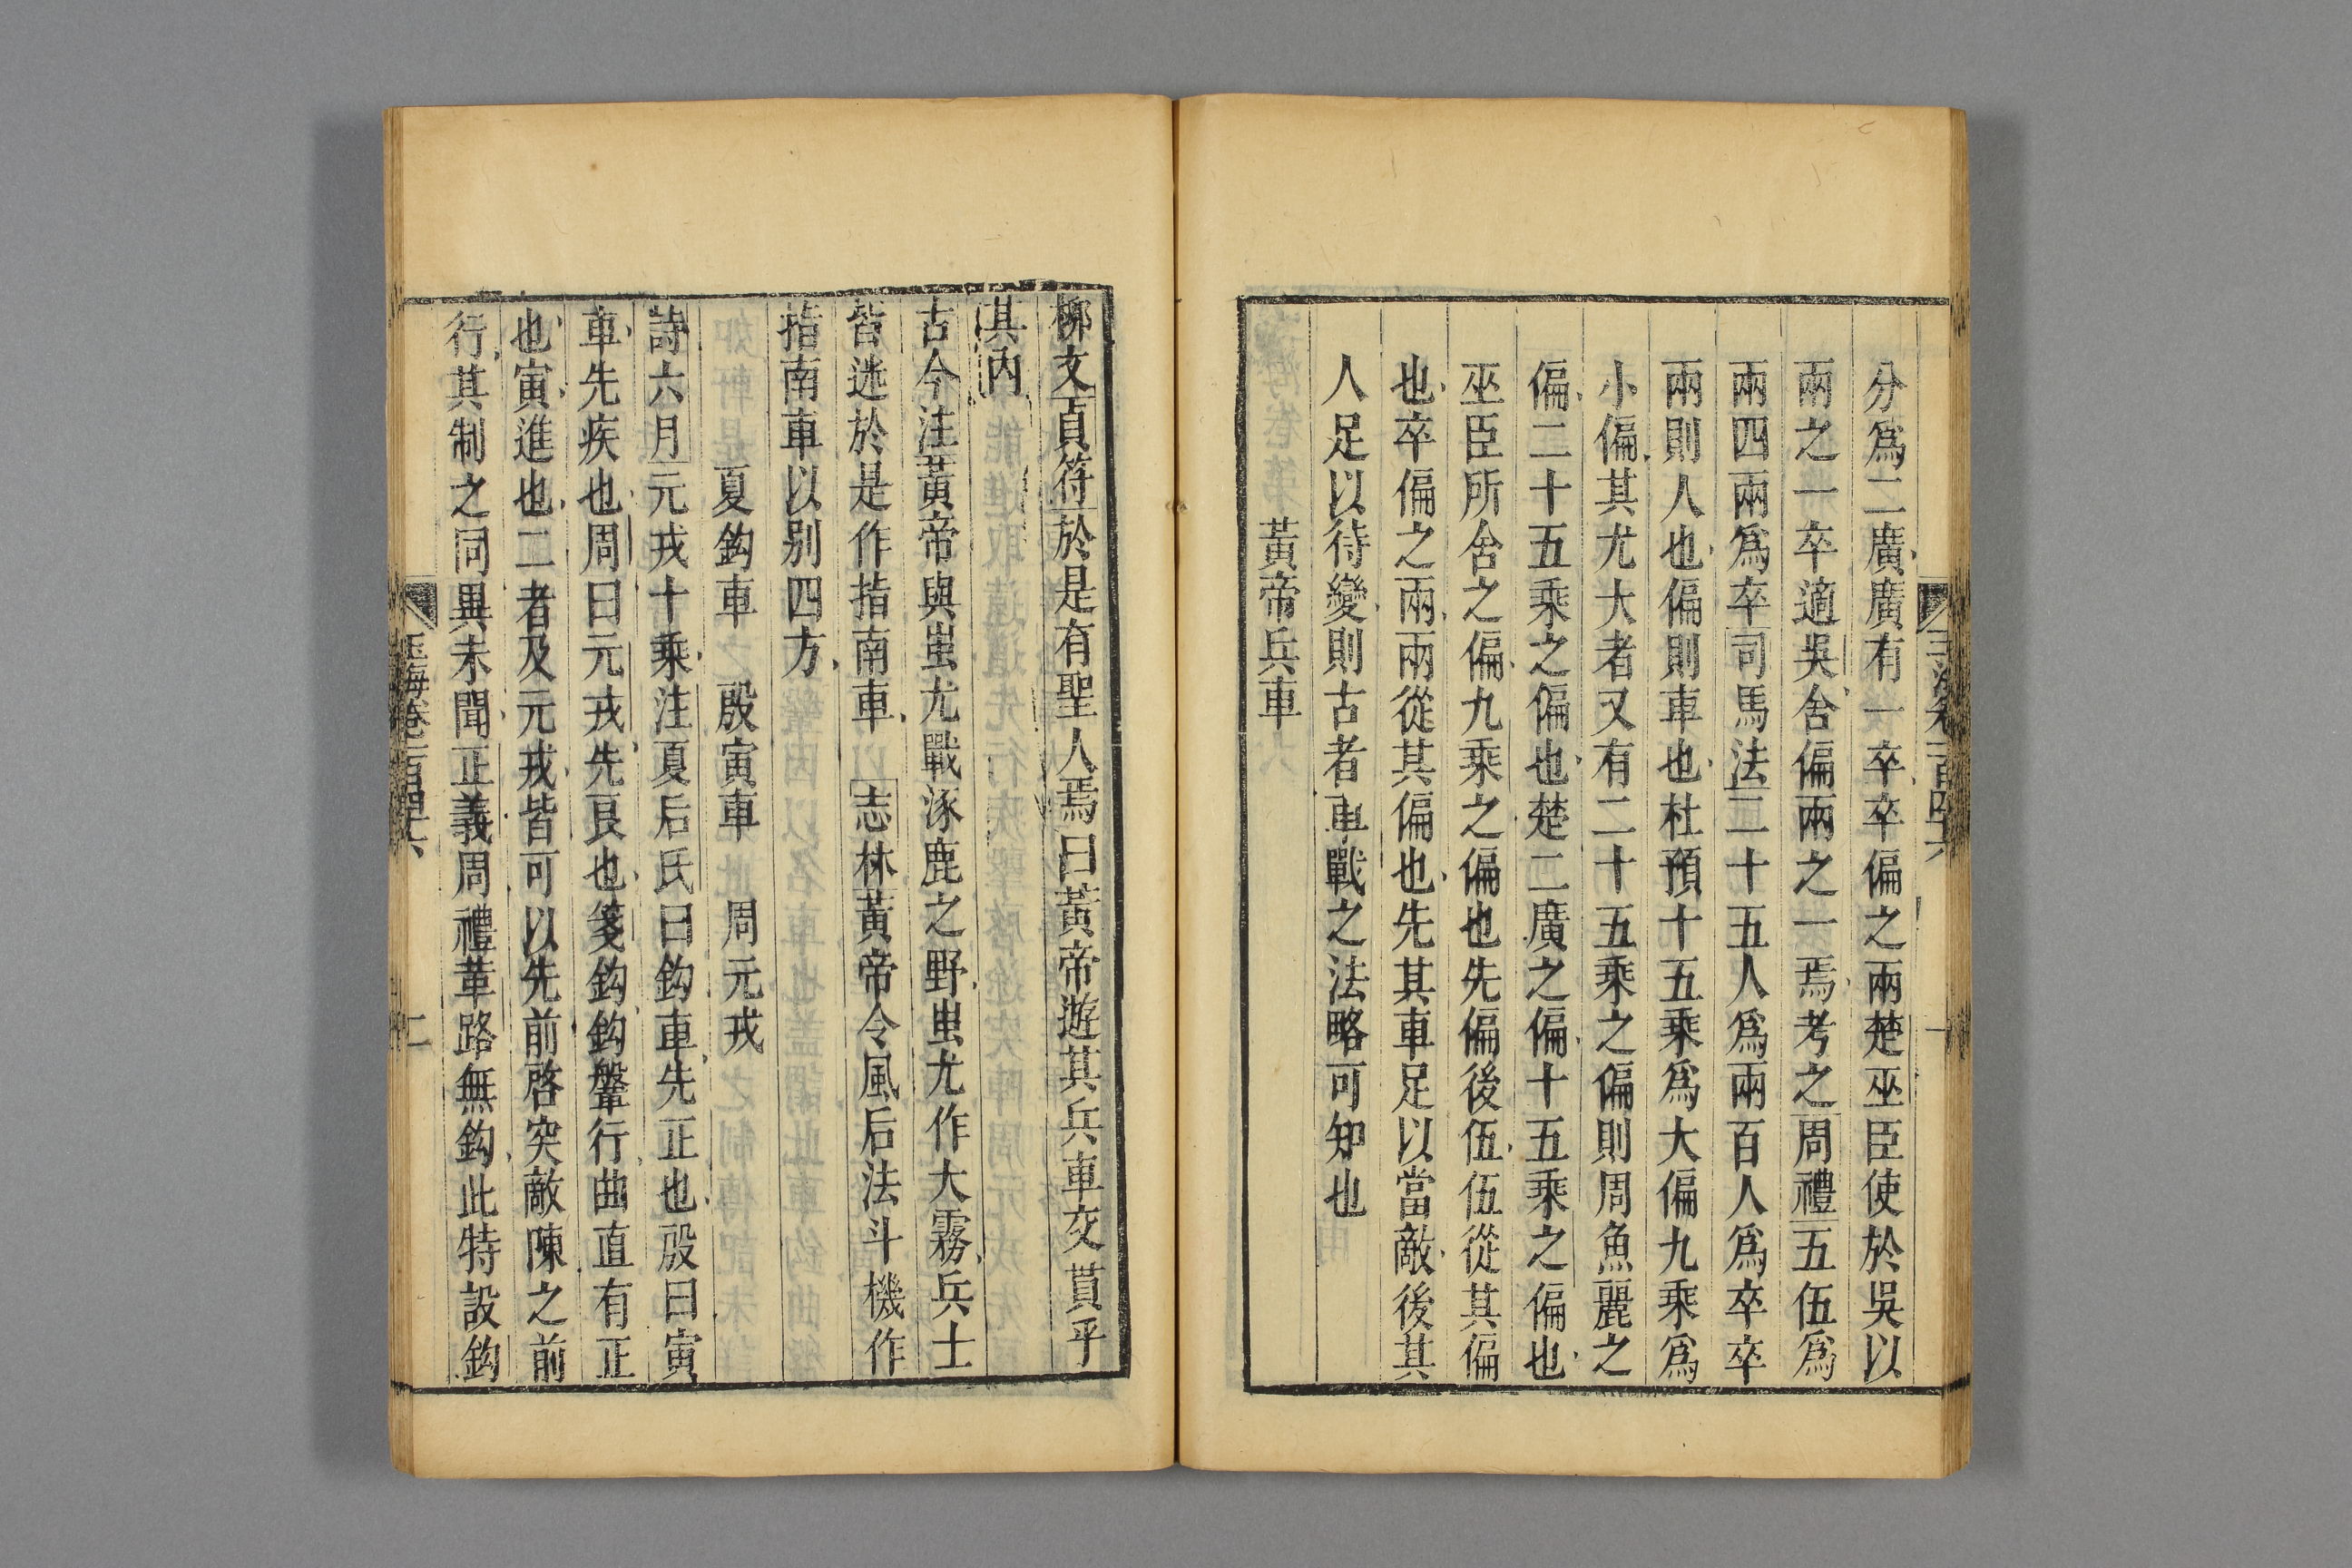 分爲二廣廣有一卒卒偏之兩楚巫臣使於吳以
兩之一卒適吳舍偏兩之一焉考之周禮五伍爲
兩四兩爲卒司馬法二十五人爲兩百人爲卒卒
兩則人也偏則車也杜預十五乘爲大偏九乘爲
小偏其尤大者又有二十五乘之偏則周魚麗之
偏二十五乘之偏也楚二廣之偏十五乘之偏也
巫臣所舍之偏九乘之偏也先偏後伍伍從其偏
也卒偏之兩兩從其偏也先其車足以當敵後其
人足以待變則古者車戰之法略可知也
黃帝兵車
柳文貞符於是有聖人焉曰黃帝遊其兵車交貫乎
其內
古今注黃帝與蚩尤戰涿鹿之野蚩尤作大霧兵士
皆迷於是作指南車 志林黃帝令風后法斗機作
指南車以別四方
夏鈎車 殷寅車 周元戎
詩六月元戎十乘注夏后氏曰鈎車先正也殷曰寅
車先疾也周曰元戎先良也箋鈎鈎鞶行曲直有正
也寅進也二者及元戎皆可以先前啓突敵陳之前
行其制之同異未聞正義周禮革路無鈎此特設鈎
玉海卷一百四十六
二